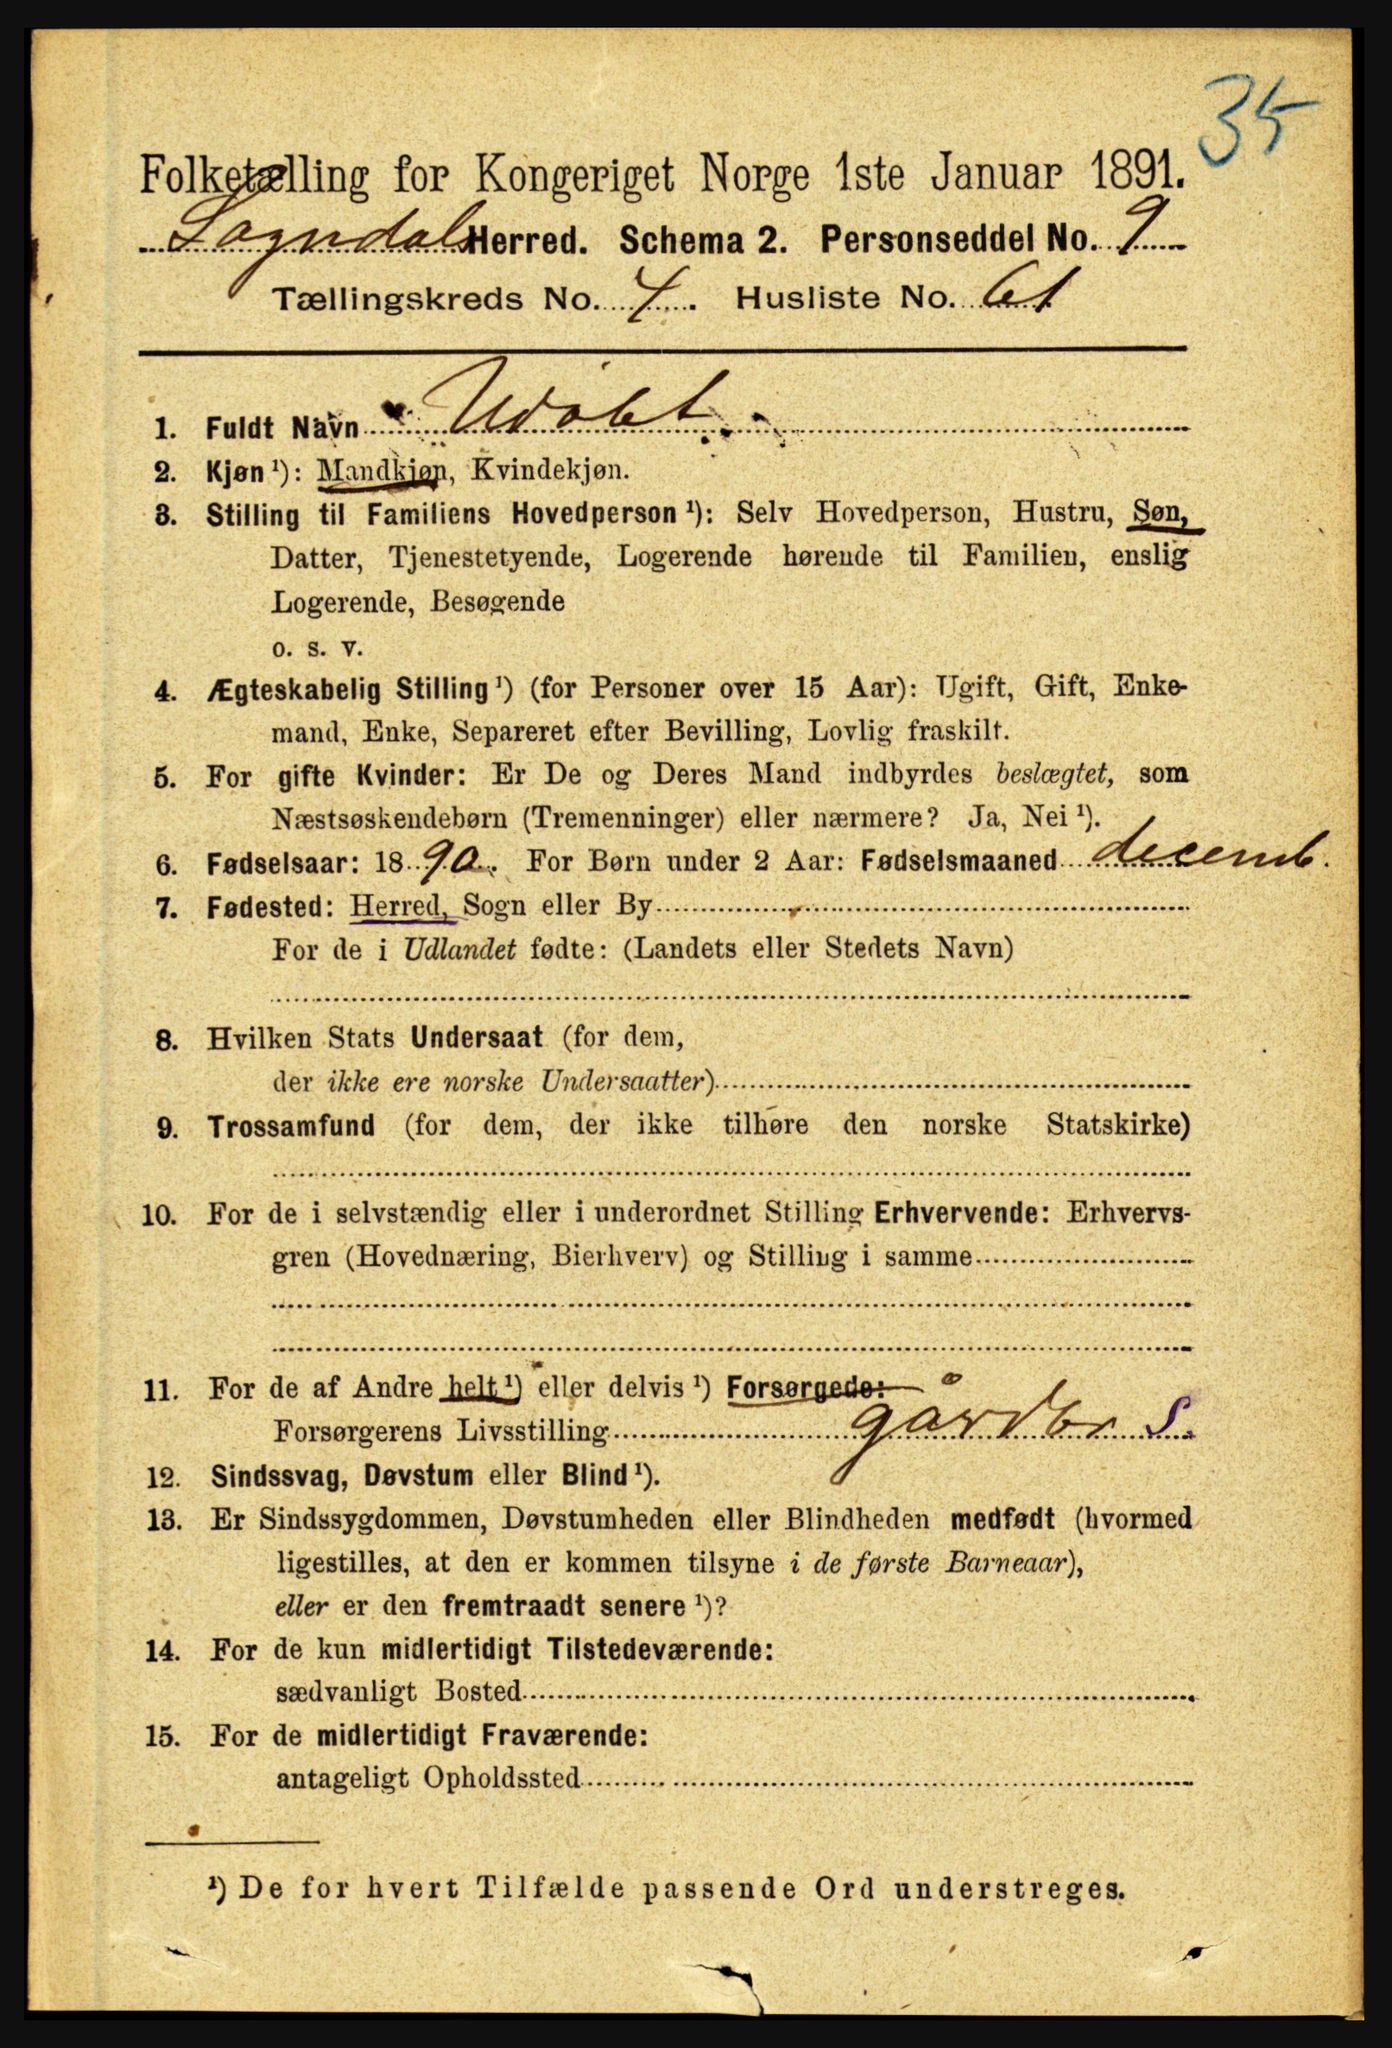 35
Folketælling for Kongeriget Norge 1ste Januar 1891.
Sogndals Herred. Schema 2. Personseddel No. 9
Tællingskreds No. 4. Husliste No. 61
1. Fuldt Navn Udøbt
2. Kjøn ¹): Mandkjøn, Kvindekjøn.
3. Stilling til Familiens Hovedperson ¹): Selv Hovedperson, Hustru, Søn,
Datter, Tjenestetyende, Logerende hørende til Familien, enslig
Logerende, Besøgende
o. s. v.
4. Ægteskabelig Stilling ¹) (for Personer over 15 Aar): Ugift, Gift, Enke-
mand, Enke, Separeret efter Bevilling, Lovlig fraskilt.
5. For gifte Kvinder: Er De og Deres Mand indbyrdes beslægtet, som
Næstsøskendebørn (Tremenninger) eller nærmere? Ja, Nei ¹).
6. Fødselsaar: 1890. For Børn under 2 Aar: Fødselsmaaned decemb.
7. Fødested: Herred, Sogn eller By
For de i Udlandet fødte: (Landets eller Stedets Navn)
8. Hvilken Stats Undersaat (for dem,
der ikke ere norske Undersaatter)
9. Trossamfund (for dem, der ikke tilhøre den norske Statskirke)
10. For de i selvstændig eller i underordnet Stilling Erhvervende: Erhvervs-
gren (Hovednæring, Bierhverv) og Stilling i samme
11. For de af Andre helt ¹) eller delvis ¹) Forsørgede:
Forsørgerens Livsstilling gårdbr S.
12. Sindssvag, Døvstum eller Blind ¹).
13. Er Sindssygdommen, Døvstumheden eller Blindheden medfødt (hvormed
ligestilles, at den er kommen tilsyne i de første Barneaar),
eller er den fremtraadt senere ¹)?
14. For de kun midlertidigt Tilstedeværende:
sædvanligt Bosted
15. For de midlertidigt Fraværende:
antageligt Opholdssted
¹) De for hvert Tilfælde passende Ord understreges.